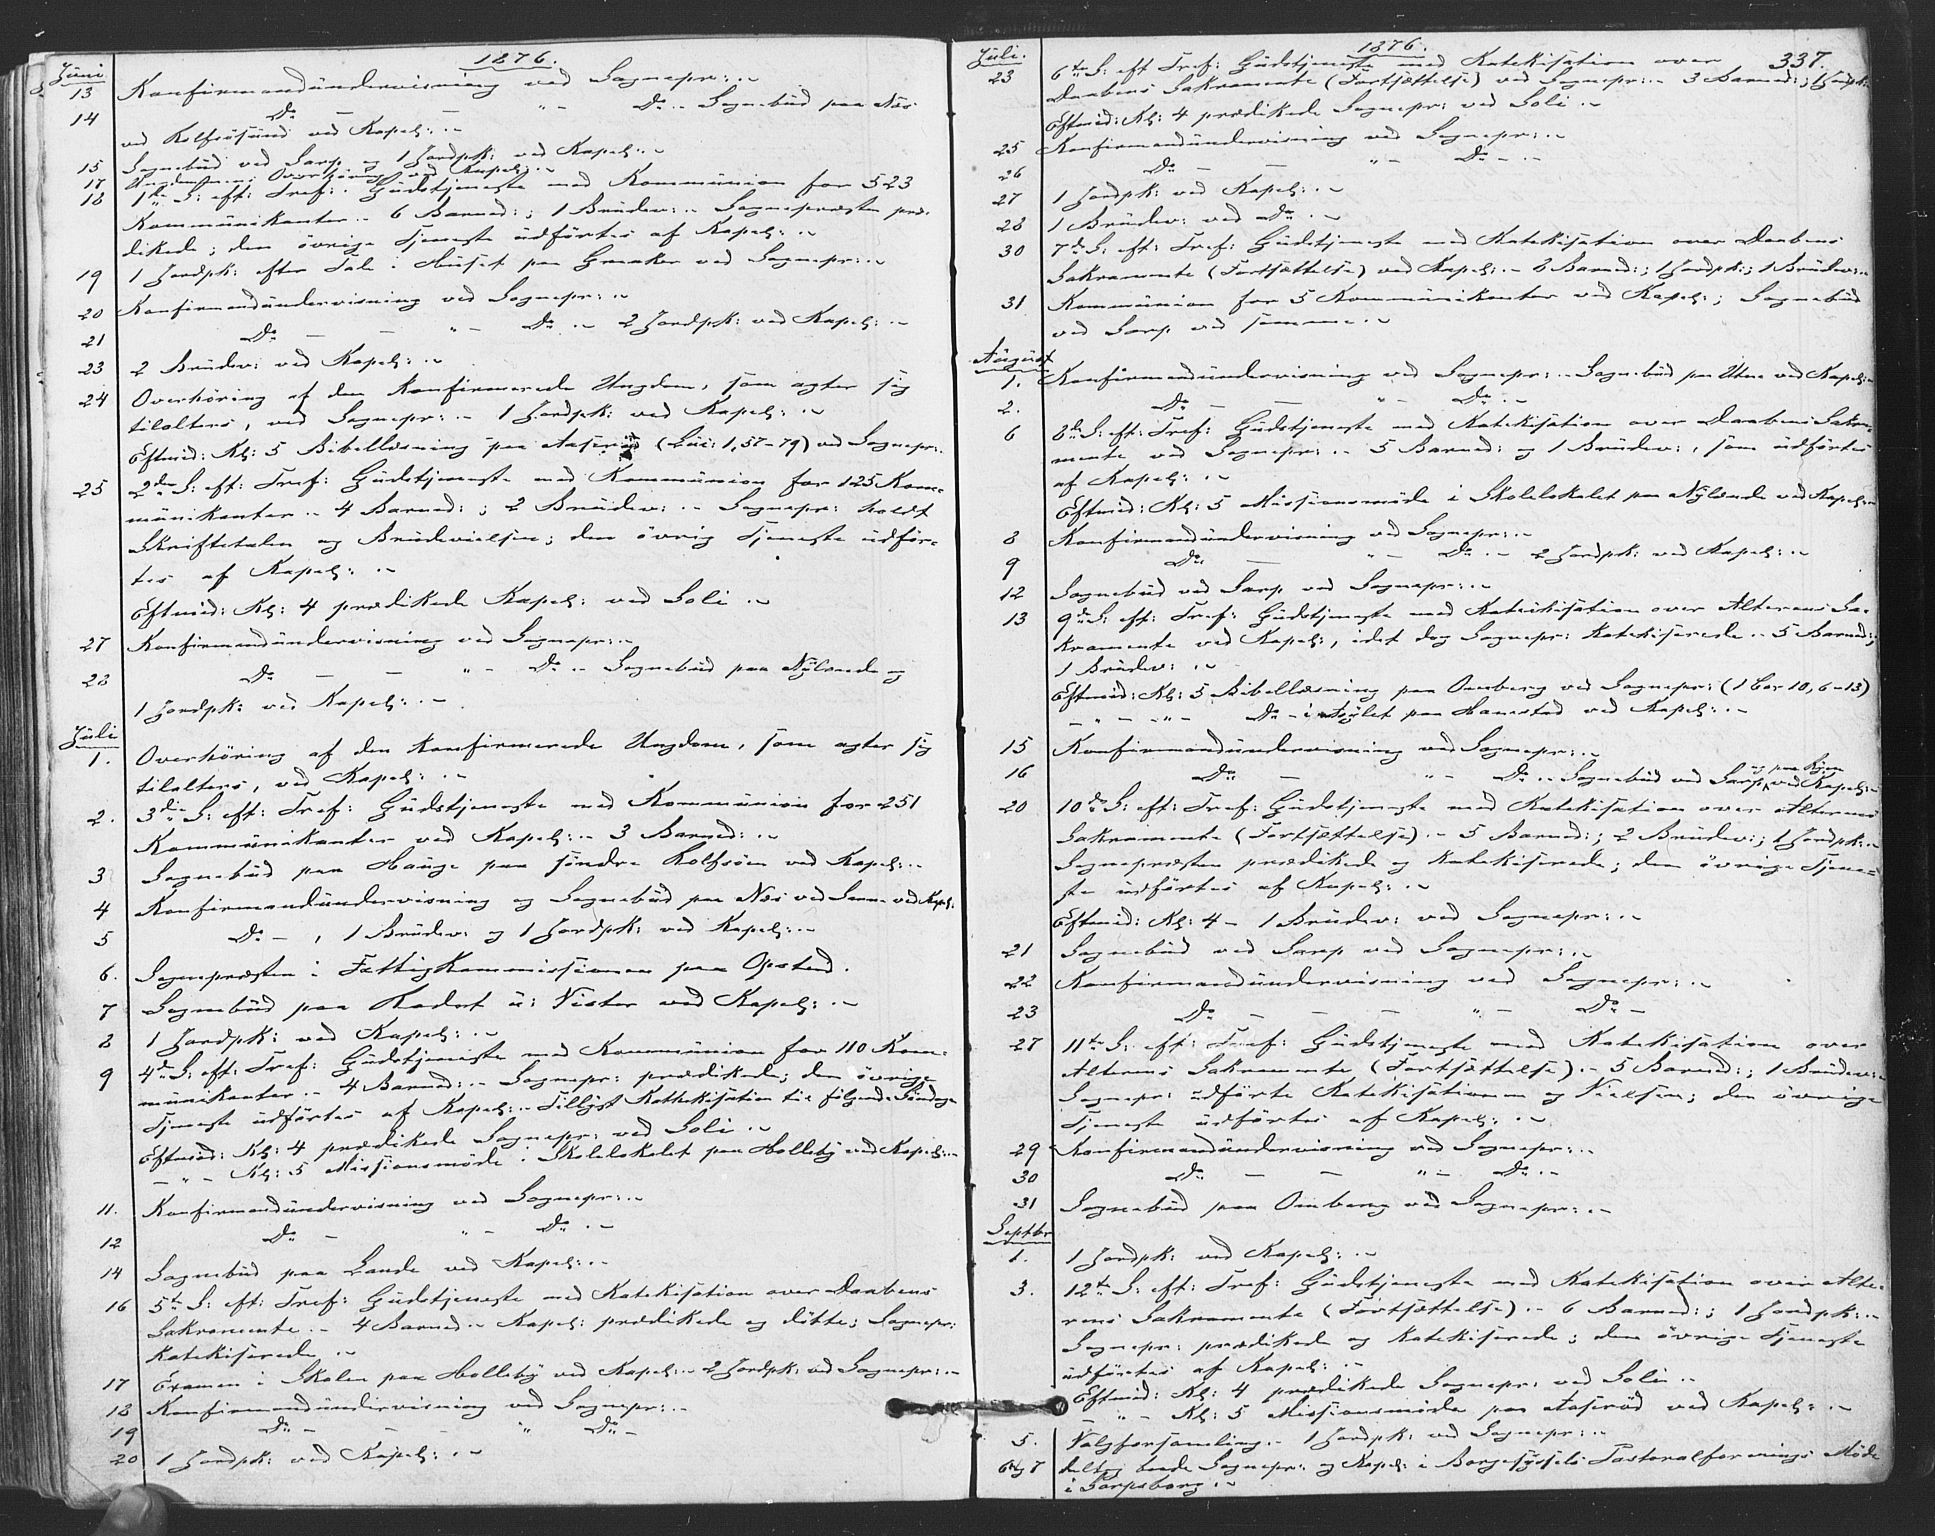 1876.
Juni
13 Konfirmandundervisning ved Sognepr: .~
14 Do — — " — Do .. Sognebud paa Næs
ved Rolfsösund ved Kapel: .~
15 Sognebud ved Sarp og 1 Jordpk: ved Kapel: .~
17 Ungdommens Overhöring ved Kapel: .~
18 1ste S: eft: Tref: Gudstjeneste med Kommunion for 523
Kommunikanter .. 6 Barned: ; 1 Brudev: .. Sognepræsten præ-
dikede; den övrige Tjeneste udförtes af Kapel: .~
19 1 Jordpk: efter Tale i Huset paa Greaker ved Sognepr: .~
20 Konfirmandundervisning ved Sognepr: .~
21 Do — — " — Do .. 2 Jordpk: ved Kapel: .~
23 2 Brudev: ved Kapel: .~
24 Overhöring af den konfirmerede Ungdom, som agter sig
tilalters, ved Sognepr: .. 1 Jordpk: ved Kapel: .~
Eftmid: Kl: 5 Bibellæsning paa Aaseröd (Luc: 1,57-79) ved Sognepr: .
25 2den S: eft: Tref: Gudstjeneste med Kommunion for 125 Kom-
munikanter .. 4 Barned: ; 2 Brudev: .. Sognepr: holdt
Skriftetalen og Brudevielsen; den övrig Tjeneste udför-
tes af Kapel: .~
Eftmid: Kl: 4 prædikede Kapel: ved Soli .~
27 Konfirmandundervisning ved Sognepr: .~
28 Do — — " — Do .. Sognebud paa Nylende og
1 Jordpk: ved Kapel: .~
Juli
1. Overhöring af den konfirmerede Ungdom, som agter sig
tilalters, ved Kapel: .~
2. 3die S: eft: Tref: Gudstjeneste med Kommunion for 251
Kommunikanter ved Kapel: .. 3 Barned: .~
3 Sognebud paa Hauge paa söndre Rolfsöen ved Kapel: .~
4 Konfirmandundervisning og Sognebud paa Næs ved Sanne ved Kapel:
5 Do — , 1 Brudev: og 1 Jordpk: ved Kapel: .~
6. Sognepræsten i Fattigkommissionen paa Opstad.
7 Sognebud paa u: Vister ved Kapel: .~
8 1 Jordpk: ved Kapel: .~
9 4de S: eft: Tref: Gudstjeneste med Kommunion for 110 Kom-
munikanter .. 4 Barned: .. Sognepr: prædikede; den övrige
Tjeneste udförtes af Kapel: .. Tillyst Kathekisation til fölgende Söndage
Eftmid: Kl: 4 prædikede Sognepr: ved Soli .~
— " — Kl: 5 Missionsmöde i Skolelokalet paa Holleby ved Kapel: .~
11. Konfirmandundervisning ved Sognepr: .~
12 Do — " — Do .~
14 Sognebud paa Lande ved Kapel: .~
16 5te S: eft: Tref: Gudstjeneste med Katekisation over Daabens
Sakramente .. 4 Barned .. Kapel: prædikede og döbte; Sognepr:
katekiserede .~
17 Examen i Skolen paa Holleby ved Kapel: .. 2 Jordpk: ved Sognepr: .~
18 Konfirmandundervisning ved Sognepr: .~
19 Do — — — " Do —
20 1 Jordpk: ved Kapel: .~
1876.
337.
Juli.
23 6te S: eft Tref: Gudstjeneste med Katekisation over
Daabens Sakramente (Fortsættelse) ved Sognepr: .. 3 Barned: ; 1 Jordpk:
Eftmid: Kl: 4 prædikede Sognepr: ved Soli .~
25 Konfirmandundervisning ved Sognepr: .~
26 Do — — " — Do .~
27 1 Jordpk: ved Kapel: .~
28 1 Brudev: ved Do .~
30 7de S: eft: Tref: Gudstjeneste med Katekisation over Daabens
Sakramente (Fortsættelse) ved Kapel: .. 8 Barned: ; 1 Jordpk: ; 1 Brudev: .~
31 Kommunion for 5 Kommunikanter ved Kapel: ; Sognebud
ved Sarp ved samme .~
August
1. Konfirmandundervisning ved Sognepr: .. Sognebud paa Utne ved Kapel:
2. Do — — " — Do .~
6 8de S: eft: Tref: Gudstjeneste med Katekisation over Daabens Sakra-
mente ved Sognepr: .. 5 Barned: og 1 Brudev: , som udförtes
af Kapel: .~
Eftmid: Kl: 5 Missionsmöde i Skolelokalet paa Nylende ved Kapel:
8 Konfirmandundervisning ved Sognepr: .~
9 Do — " — Do .. 2 Jordpk: ved Kapel: .~
12 Sognebud ved Sarp ved Sognepr: .~
13 9de S: eft: Tref: Gudstjeneste med Katekisation over Alterens Sa-
kramente ved Kapel: , idet dog Sognepr: katekiserede .. 5 Barned: ;
1 Brudev: .~
Eftmid: Kl: 5 Bibellæsning paa Omberg ved Sognepr: (1 Cor 10, 6-13)
— " — — " — Do — i Asylet paa Hannestad ved Kapel: .~
15 Konfirmandundervisning ved Sognepr: .~
og paa
16 Do — " — Do .. Sognebud ved Sarp ved Kapel: .~
20 10de S: eft: Tref: Gudstjeneste med Katekisation over Alterens
Sakramente (Fortsættelse) .. 5 Barned: ; 2 Brudev: ; 1 Jordpk: .~
Sognepræsten prædikede og katekiserede; den övrige Tjene-
ste udförtes af Kapel: .~
Eftmid: Kl: 4 — 1 Brudev: ved Sognepr: .~
21 Sognebud ved Sarp ved Sognepr: .~
22 Konfirmandundervisning ved Sognepr: .~
23 Do — — — " — Do —
27 11te S: eft: Tref: Gudstjeneste med Katekisation over
Alterens Sakramente (Fortsættelse) .. 5 Barned: ; 1 Brudev: .
Sognepr: udförte Katekisationen og Vielsen; den övrige
Tjeneste udförtes af Kapel: .~
29 Konfirmandundervisning ved Sognepr: .~
30 Do — — " — Do .~
31 Sognebud paa Omberg ved Sognepr: .~
Septbr
1. 1 Jordpk: ved Kapel: .~
3. 12te S: eft: Tref: Gudstjeneste med Katekisation over Alte-
rens Sakramente (Fortsættelse) .. 6 Barned: ; 1 Jordpk: .~
Sognepr: prædikede og katekiserede; den övrige Tjeneste
udförtes af Kapel: .~
Eftmid: Kl: 4 prædikede Sognepr: ved Soli .~
— " — Kl: 5 Missionsmöde paa Aaseröd ved Kapel: .~
5. Valgforsamling .. 1 Jordpk: ved Sognepr: .~
6 og 7 deltog baade Sognepr: og Kapel: i Borgesyssels Pastoralforenings Möde
i Sarpsborg .~